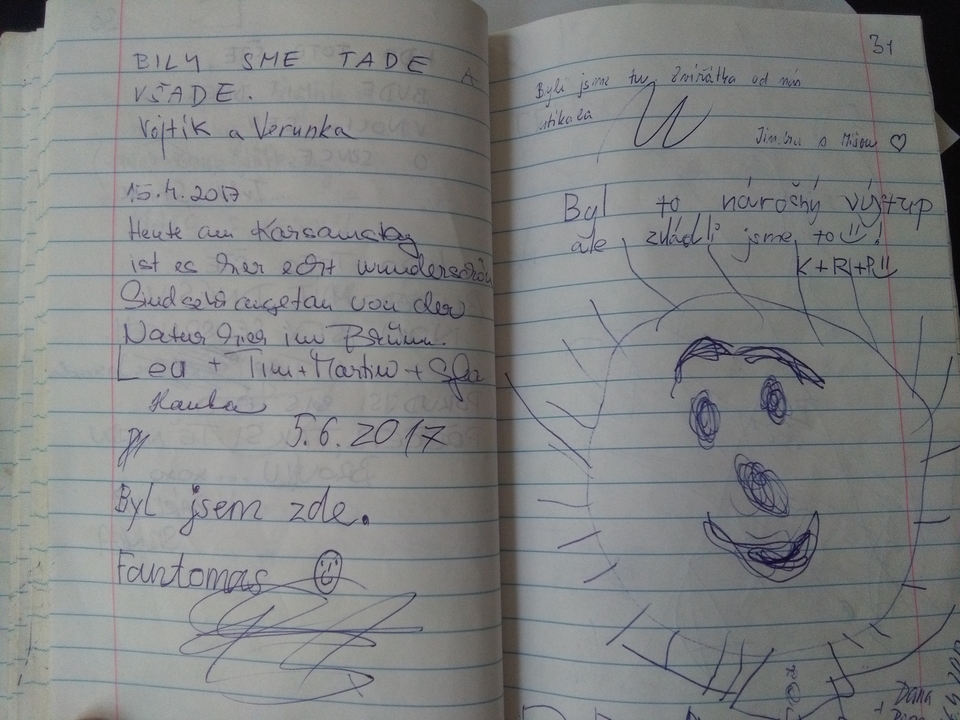 BILY SME TADE A
VŠADE.
Vojtík a Verunka
15.4.2017
Heute am Karsamstag
ist es hier echt wunderschön
Sind sehr angetan von der
Natur hier im Brünn.
Lea + Tim + Martin +
Hanka
5.6.2017
Byl jsem zde.
Fantomas
31
Byli jsme tu Zvířátka od nás
utíkala
Jimča a Míšou ♡
Byl to náročný výstup
ale zvládli jsme to !
K+R+P
Dana
+